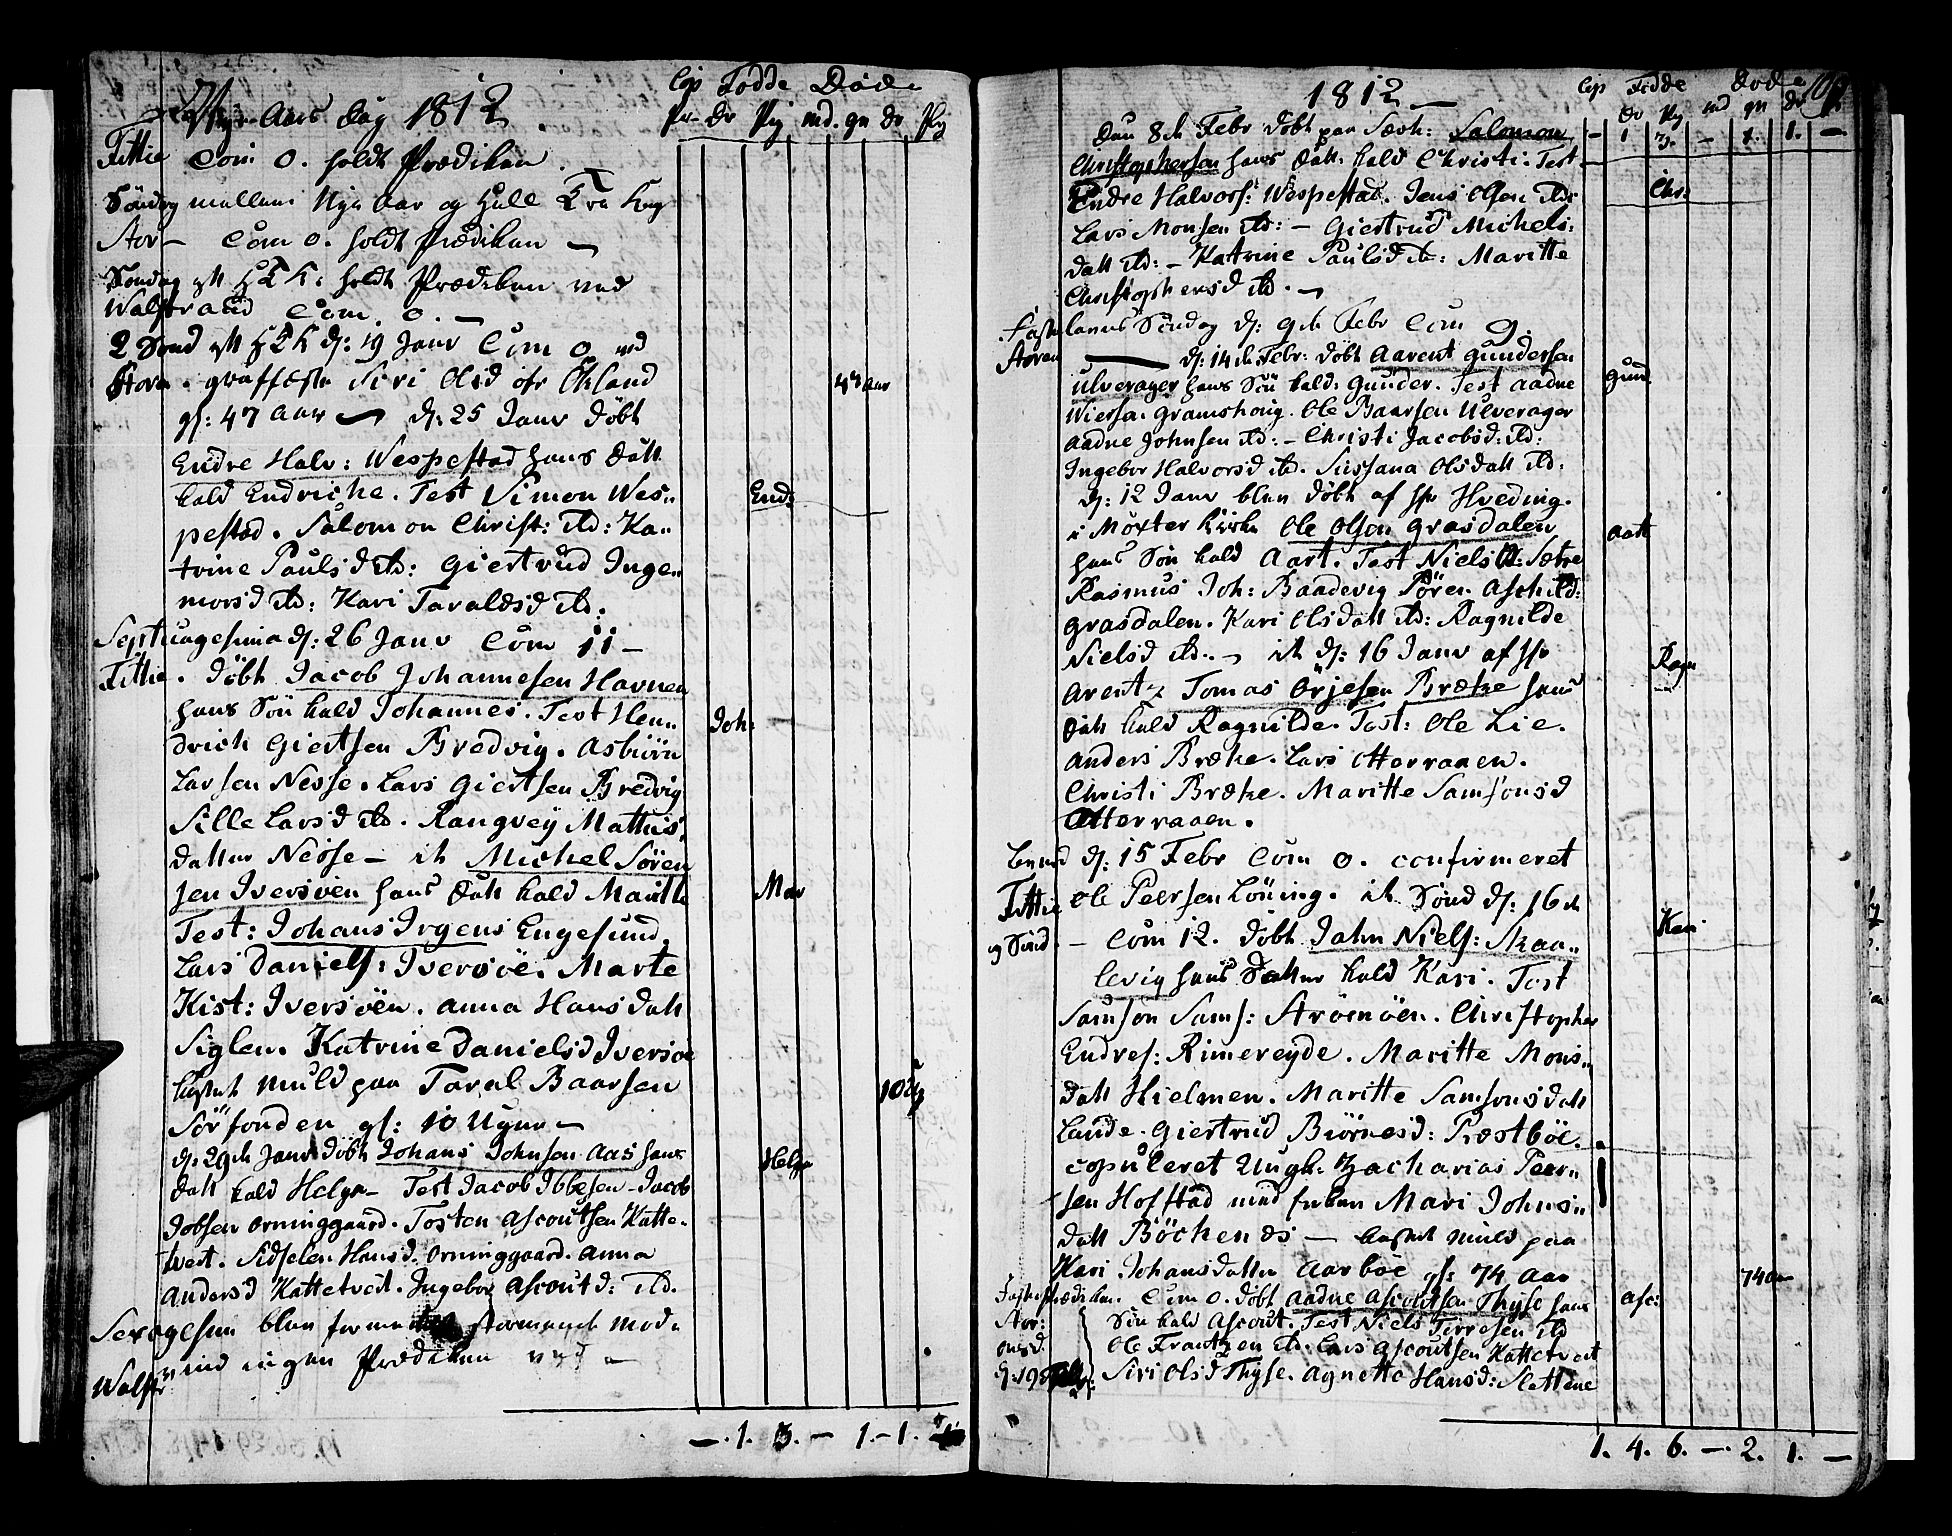 Nye Aars dag 1812
Cop Fødde Døde
Pr - dr Pig md. qu dr Pig
Fittie Com 0. holdt Prædiken
Søndag mellem Nye Aar og Hell. Tre Kong
Aor - Com 0. holdt Prædiken
Søndag H T K: holdt Prædiken ved
Walstrand Com. 0. -
2 Sønd H T K d: 19 Janv Com 0
Storø. graffæste Siri Olsd Økland
47 Aar
gl: 47 Aar - d: 25 Janv døbt
Endre Halv: Wespestad hans datt
kald Endriche. Test Simon Wes-
End:
pestad. Salomon Christ: itd: Ka-
trine Paulsd itd: Giertrud Inge-
morsd itd: Kari Taraldsd itd.
Septuagesima d: 26 Janv Com 11 -
Fittie. døbt Jacob Johannesen Havnen
hans Søn kald Johannes. Test Hen-
Joh:
drich Giertsen Bredvig. Asbiørn
Larsen Nesse. Lars Giertsen Bredvig
Sille Larsd itd. Rangvey Mattis-
datter Nesse - it Michel Søren
sen Iversøen hans datt kald Maritte
Mar
Test: Johans Irgens Engesund
Lars Daniels: Iversøe. Marte
Kist: Iversøen. Anna Hansdatt
Siglen. Katrine Danielsd Iversøe
kastet muld paa Taral Baarsen
10 Ug
Sørfonden gl: 10 Uger -
d: 29de Janv døbt Johans Johnsen Aas hans
Helge
datt kald Helge - Test Jacob Ibbesen - Jacob
Jobsen Orninggaard. Tosten Ascoutsen Katte-
tvet. Sidselen Hansd: Orninggaard. Anna
Andersd Kattetved. Ingebor Ascoutd: itd.
Sexagesim blev formedelst stormende mod-
vind ingen Prædiken ved -
Walstr
- . 1. 3. - 1. - 1.
1812 -
Cop Fødde Døde
dr Pig md qu dr
dau 8de Febr døbt paa Sæth: Salomon
- 1 3. - 1. 1. -
Christophersen hans datt. kald Christi. Test
Endre Halvors: Wespestad. Jens Olsen itd:
Chr:
Lars Monsen itd: - Giertrud Michels:
datt itd: - Katrine Paulsd itd: Maritte
Christophersd itd. -
Fastelavns Søndag d: 9de Febr Com 9.
Aoren d: 14de Febr: døbt Aarent Gundersen
Ulverager hans Søn kald: Gunder. Test Aadne
Gund.
Wiersa. Gramshoug. Ole Baarsen Ulverager
Aadne Johnsen itd: - Christi Jacobsd: itd:
Ingebor Halvorsd itd. Sussana Olsdatt itd.
d: 12 Janv blev døbt af Hr Hveding.
i Møxter Kirke Ole Olsen Grasdalen
Aatt
hans Søn kald Aart. Test Niels Sætre
Rasmus Joh: Baadevig Søren Aschild:
Grasdalen. Kari Olsdatt itd: Ragnilde
Nielsd itd. - it d: 16 Janv af Hr
Ragn
Arentz Tomas Ørjesen Bræke hans
datt kald Ragnilde. Test: Ole Lie.
Anders Bræke. Lars Otterraaen.
Christi Bræke. Maritte Samsonsd
Otterraaen.
d: 15 Febr Com 0. confirmeret
Fittie Ole Peersen Løning. it Sønd d: 16de
Kari
og Sønd. - Com 12. døbt Jahn Niels: Skaa-
levig hans datter kald Kari. Test
Samson Sams: Strømøen. Christopher
Endres: Rimereyde. Maritte Mons-
datt Hielmen. Maritte Samsonsdatt
Lande. Giertrud Biørnesd: Præstbøe.
copuleret Ungk: Zacharias Peer-
sen Hoffstad med Enken Mari Johns-
datt Böchenes - kastet muld paa
Kari Johansdatter Aarbøe gl: 74 Aar
74 aar
Fasteprædiken. Com 0. døbt Aadne Ascoutsen Thyse hans
Asc:
Aor: Søn kald Ascout. Test Niels Tirresen itd
onsd. Ole Frantzen itd: Lars Ascoutsen Kattetvet
Siri Olsd Thyse. Agnette Hansd: Slettene
1. 4. 6. - 2. 1. -